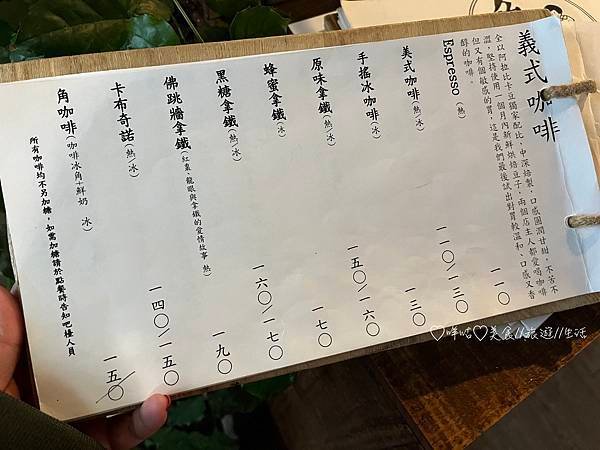 義式咖啡
全以阿拉比卡豆獨家配比，中深焙製，口感圓潤甘甜，不苦不
澀，堅持使用一個月內新鮮烘焙豆子，兩個店主人都愛喝咖啡
但又有個敏感的胃，這是我們最後試出對胃較溫和、口感又香
醇的咖啡。
Espresso（熱） 一一〇
美式咖啡（熱/冰） 一一〇/一三〇
手搖冰咖啡（冰） 一三〇
原味拿鐵（熱/冰） 一五〇/一六〇
蜂蜜拿鐵（冰） 一七〇
黑糖拿鐵（熱/冰） 一六〇/一七〇
佛跳牆拿鐵（紅棗、龍眼與拿鐵的愛情故事 熱） 一九〇
卡布奇諾（熱/冰） 一四〇/一五〇
角咖啡（咖啡冰角+鮮奶 冰） 一五〇
所有咖啡均不另加糖，如需加糖請於點餐時告知吧檯人員
♡咩咕♡美食//旅遊//生活